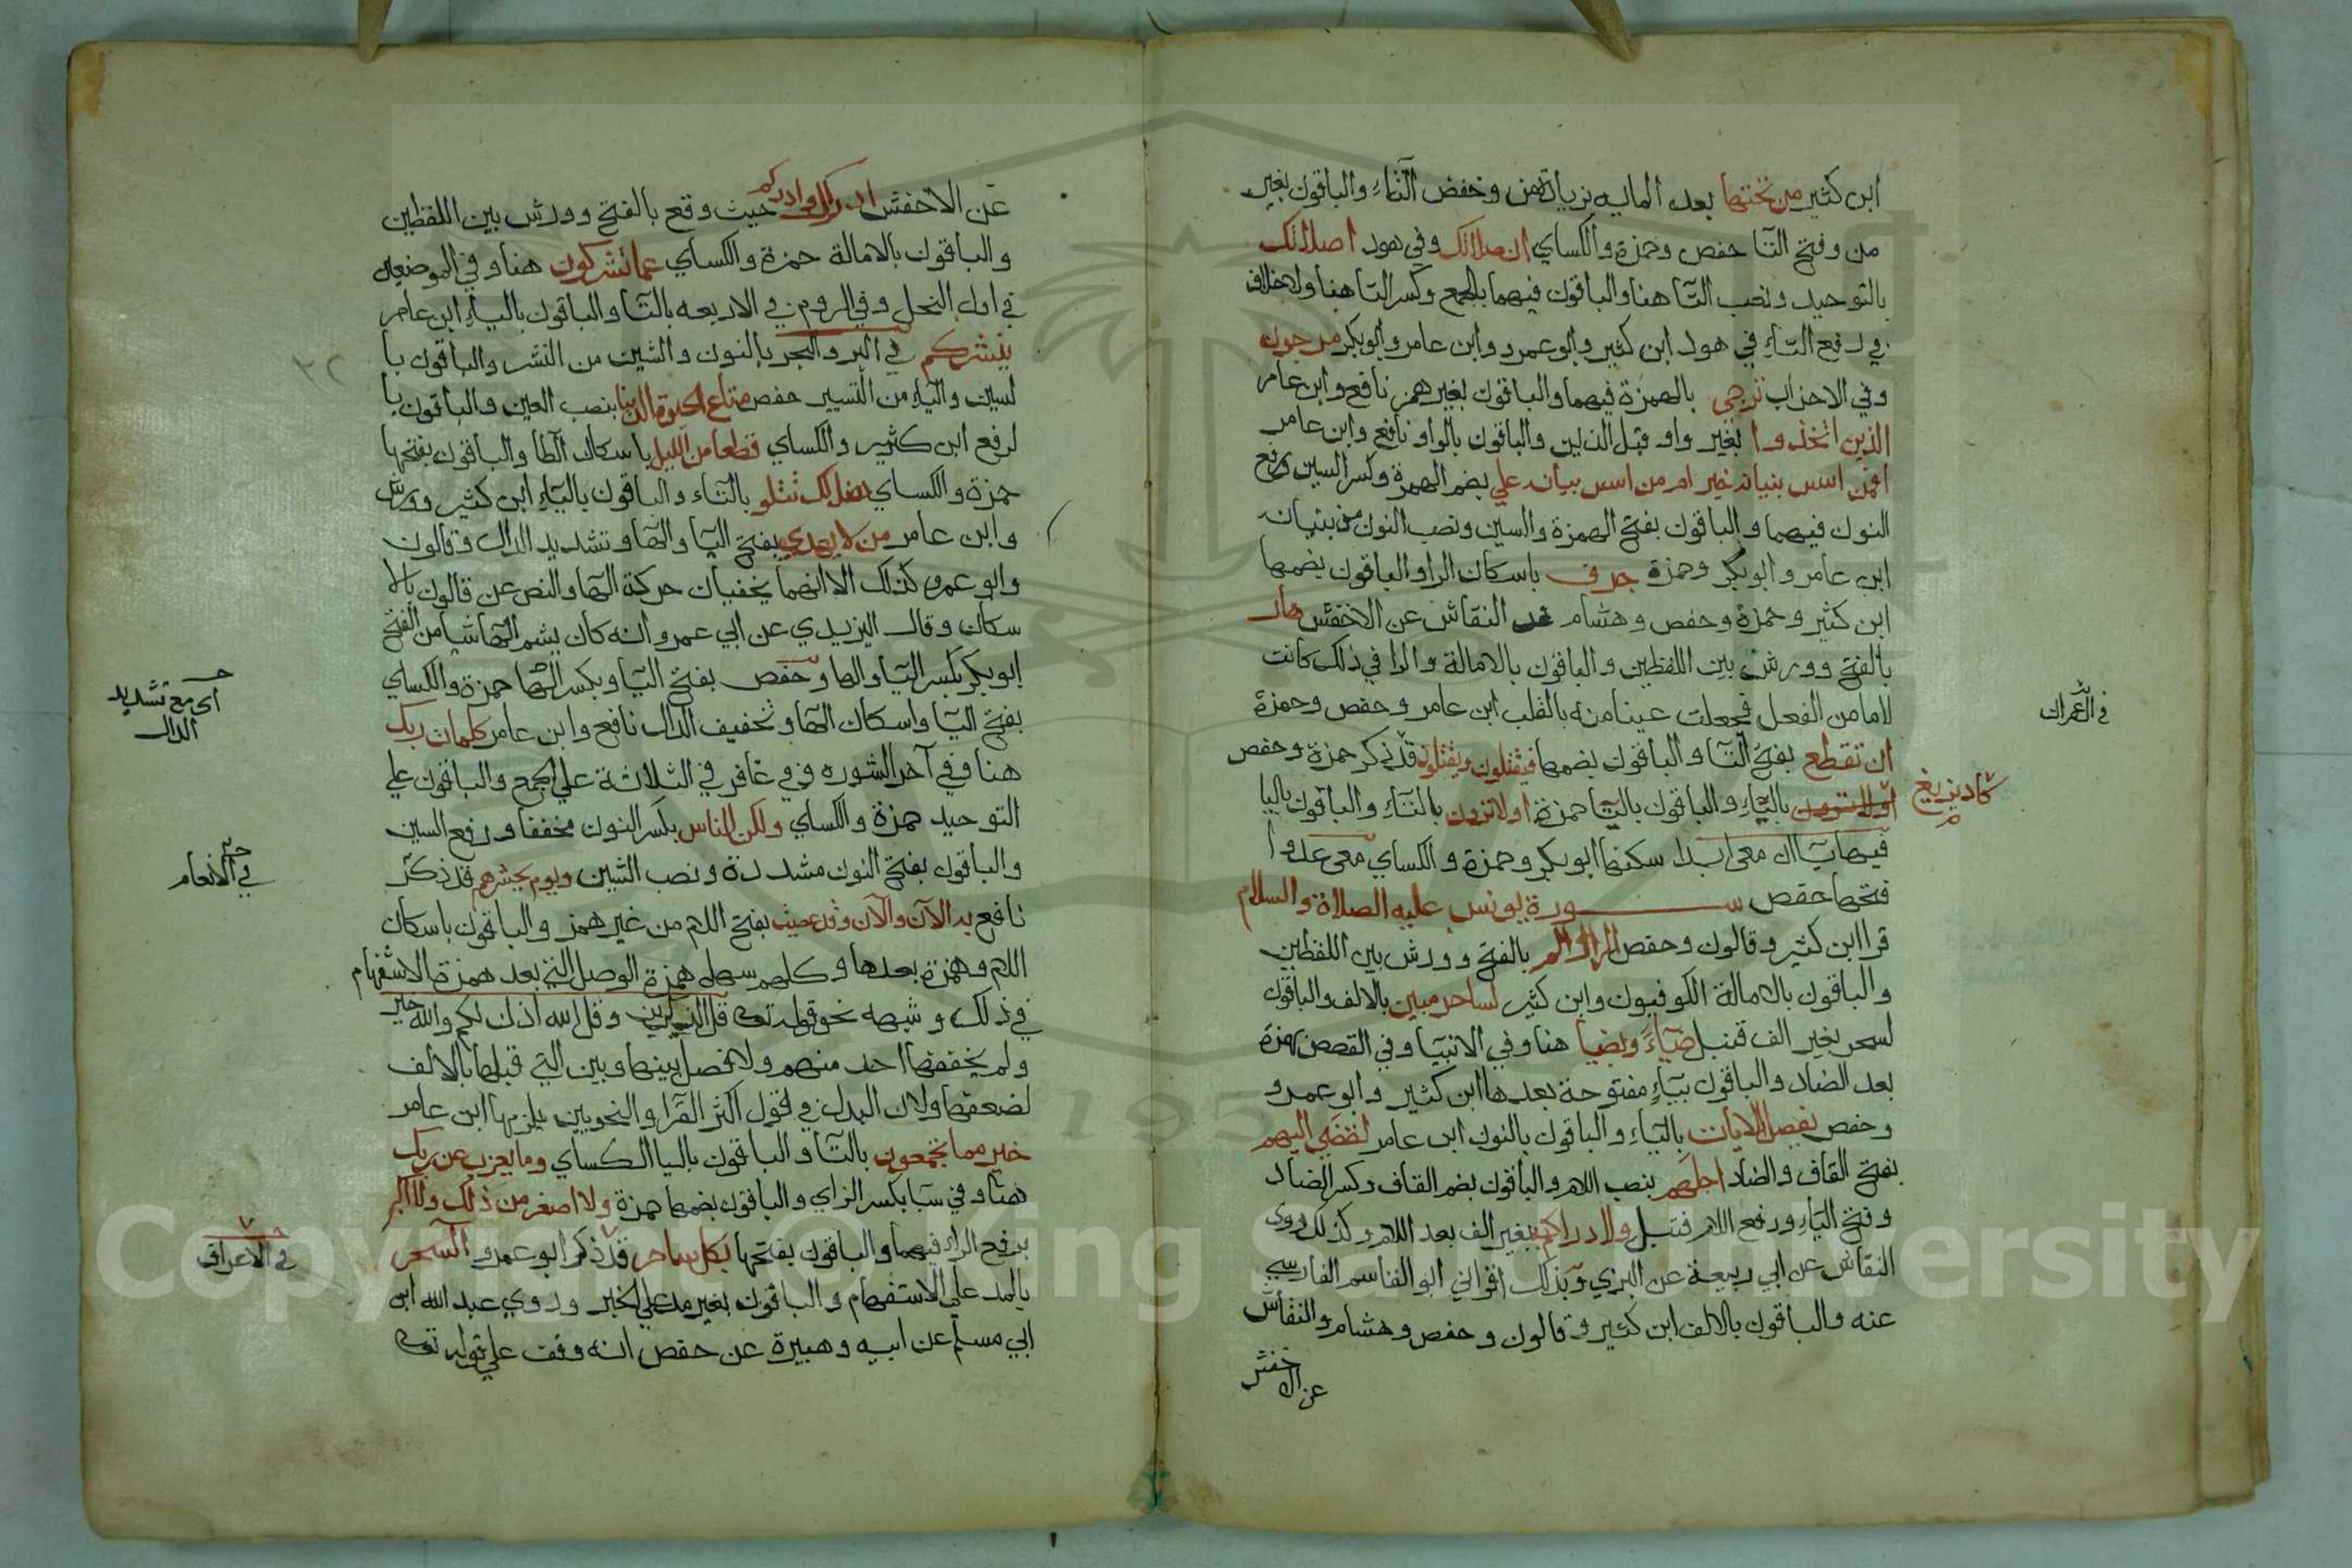 ابن كثير من تحتها بعد الماية بزيادة من وخفض التاء والباقون بغير
من وفتح التا حفص وحمزة والكساي ان صلاتك وفي هود اصلاتك
بالتوحيد ونصب التا هنا والباقون فيهما بالجمع وكسر التا هنا ولا خلاف
في رفع التاء في هود ابن كثير وابو عمرو وابن عامر وابو بكر مرجون
وفي الاحزاب ترجي بالهمزة فيهما والباقون بغير همز نافع وابن عامر
الذين اتخذوا بغير واو قبل الذين والباقون بالواو نافع وابن عامر
افمن اسس بنيانه خير ام من اسس بنيانه علي بضم الهمزة وكسر السين ورفع
النون فيهما والباقون بفتح الهمزة والسين ونصب النون من بنيانه
ابن عامر وابو بكر وحمزة جرف باسكان الرا والباقون بضمها
ابن كثير وحمزة وحفص وهشام النقاش عن الاخفش هار
بالفتح وورش بين اللفظين والباقون بالامالة والرا في ذلك كانت
لاما من الفعل فجعلت عينا منه بالقلب ابن عامر وحفص وحمزة
في ال عمران
ان تقطع بفتح التا والباقون بضمها فيقتلون ويقتلون قد ذكر حمزة وحفص
كاد يزيغ
بالياء والباقون بالتا حمزة اولا ترون بالتاء والباقون باليا
فيها ياان معي ابدا سكنها ابو بكر وحمزة والكساي معي عدوا
فتحها حفص سورة يونس عليه الصلاة والسلام
قرا ابن كثير وقالون وحفص الر والمر بالفتح وورش بين اللفظين
والباقون بالامالة الكوفيون وابن كثير لساحر مبين بالالف والباقون
لسحر بغير الف قنبل ضياء وبضيا هنا وفي الانبيا وفي القصص بهمزة
بعد الضاد والباقون بياء مفتوحة بعدها ابن كثير وابو عمرو
وحفص يفصل الايات بالياء والباقون بالنون ابن عامر لقضي اليهم
بفتح القاف والضاد اجلهم بنصب اللام والباقون بضم القاف وكسر الضاد
وفتح الياء ورفع اللام قنبل ولادراكم بغير الف بعد اللام وكذلك روى
النقاش عن ابي ربيعة عن البزي وبذلك اقراني ابو القاسم الفارسي
عنه والباقون بالالف ابن كثير وقالون وحفص وهشام والنقاش
عن الاخفش
عن الاخفش ادراك وادراكم حيث وقع بالفتح وورش بين اللفظين
والباقون بالامالة حمزة والكساي عما تشركون هنا وفي الموضعين
في اول النحل وفي الروم في الاربعه بالتا والباقون بالياء ابن عامر
ينشركم في البر والبحر بالنون والشين من النشر والباقون با
لسين والياء من التسيير حفص متاع الحيوة الدنيا بنصب العين والباقون با
لرفع ابن كثير والكساي قطعا من الليل باسكان الطا والباقون بفتحها
حمزة والكساي هنالك تتلو بالتاء والباقون بالباء ابن كثير وورش
وابن عامر من لا يهدي بفتح اليا والها وتشديد الدال وقالون
وابو عمرو كذلك الا انهما يخفيان حركة الها والنص عن قالون بالا
سكان وقال اليزيدي عن ابي عمرو انه كان يشم الها شيا من الفتح
ابو بكر بكسر اليا والها وحفص بفتح اليا وبكسر الها حمزة والكساي
اي مع تشديد
الدال
بفتح اليا واسكان الها وتخفيف الدال نافع وابن عامر كلمات ربك
هنا وفي آخر السوره وفي غافر في الثلاثة علي الجمع والباقون علي
التوحيد حمزة والكساي ولكن الناس بكسر النون مخففا ورفع السين
والباقون بفتح النون مشددة ونصب السين ويوم يحشرهم قد ذكر
في الانعام
نافع به الآن والآن وقد عصيت بفتح اللام من غير همز والباقون باسكان
اللام وهمزة بعدها وكلهم سهل همزة الوصل التي بعد همزة الاستفهام
في ذلك وشبهه نحو قوله تعالى قل الذكرين وقل الله اذن لكم والله خير
ولم يخففها احد منهم ولا فصل بينها وبين التي قبلها بالالف
لضعفها ولان البدل في قول اكثر القرا والنحويين يلزمها ابن عامر
خير مما تجمعون بالتا والباقون باليا الكساي وما يعزب عن ربك
هنا وفي سبا بكسر الزاي والباقون بضمها حمزة ولا اصغر من ذلك ولا اكبر
برفع الراء فيهما والباقون بفتحها بكل ساحر قد ذكر ابو عمرو السحر
في الاعراف
بالمد علي الاستفهام والباقون بغير مد علي الخبر وروي عبد الله ابن
ابي مسلم عن ابيه وهبيرة عن حفص انه وقف علي قوله تعالى
Copyright © King Saud University
195